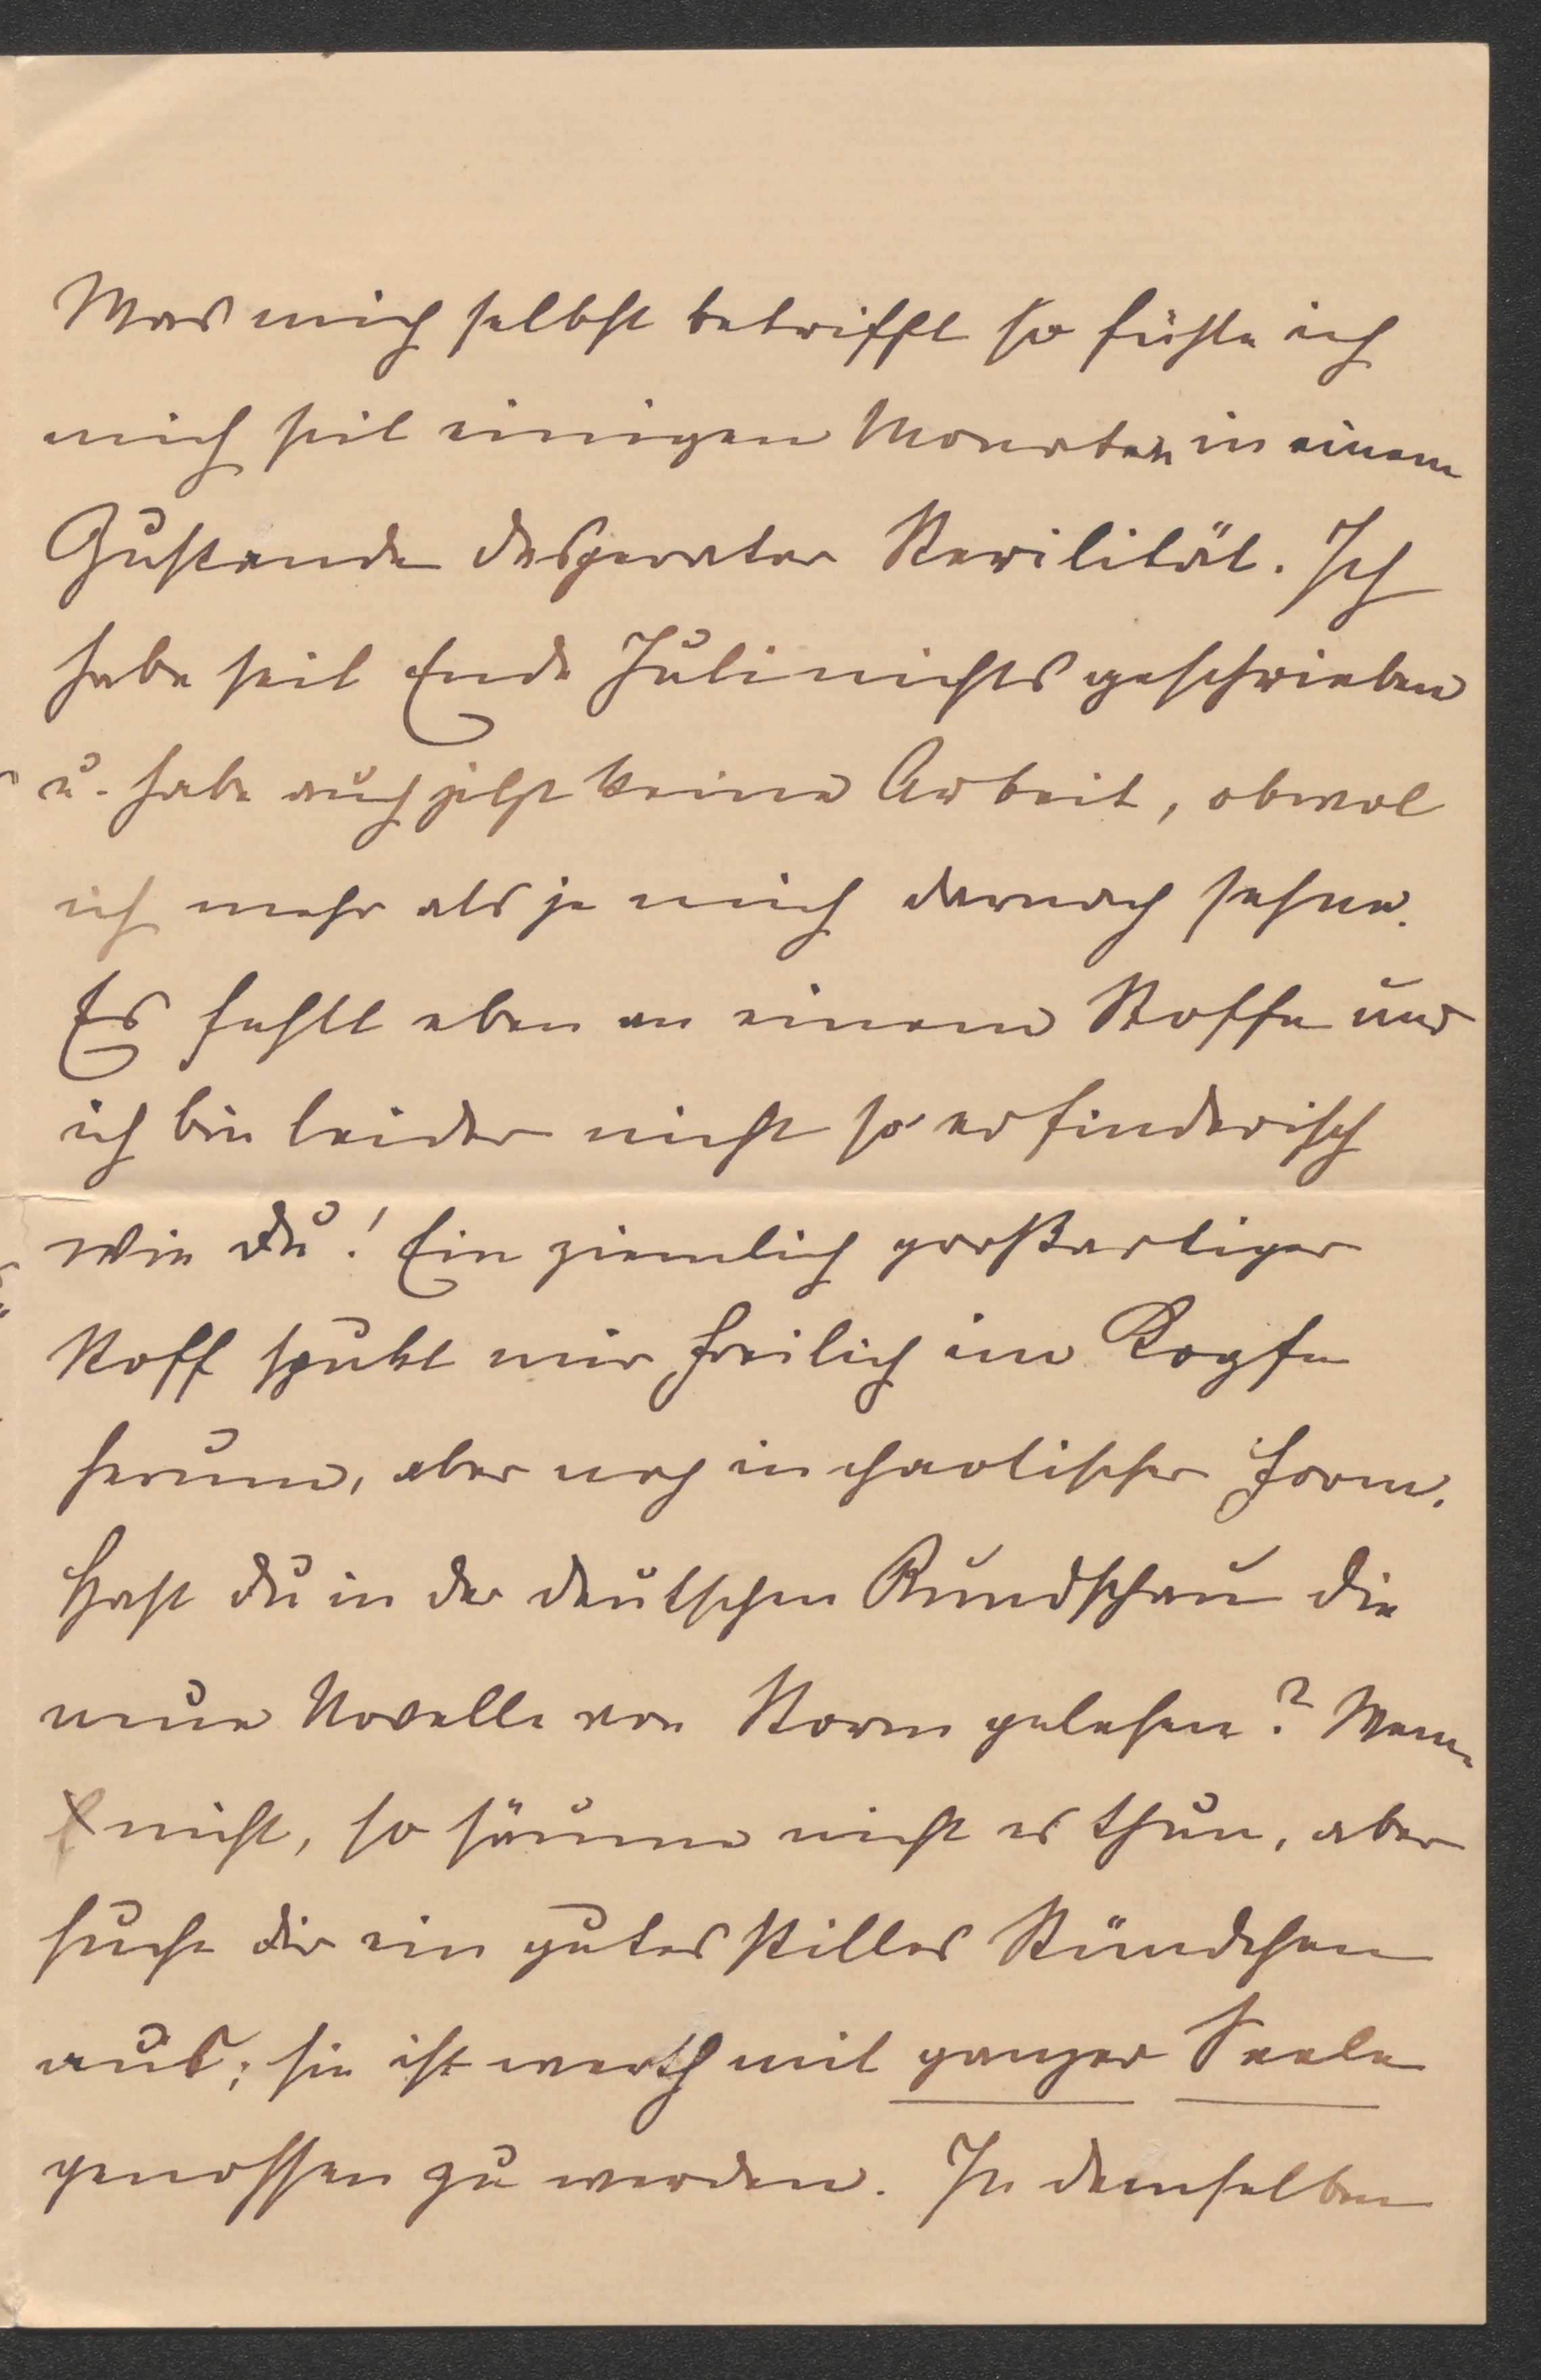 Was mich selbst betrifft so fühle ich
mich seit einigen Monaten in einem
Zustande desperater Sterilität. Ich
habe seit Ende Juli nichts geschrieben
u. habe auch jetzt keine Arbeit, obwol
ich mehr als je mich darnach sehne.
Es fehlt eben an einem Stoffe und
ich bin leider nicht so erfinderisch
wie du! Ein ziemlich großartiger
Stoff spukt mir freilich im Kopfe
herum, aber noch in chaotischer Form.
Hast du in der deutschen Rundschau die
neue Novelle von Storm gelesen? Wenn
nicht, so säume nicht es thun, aber
suche dir ein gutes stilles Stündchen
aus; sie ist werth mit ganzer Seele
genossen zu werden. In demselben